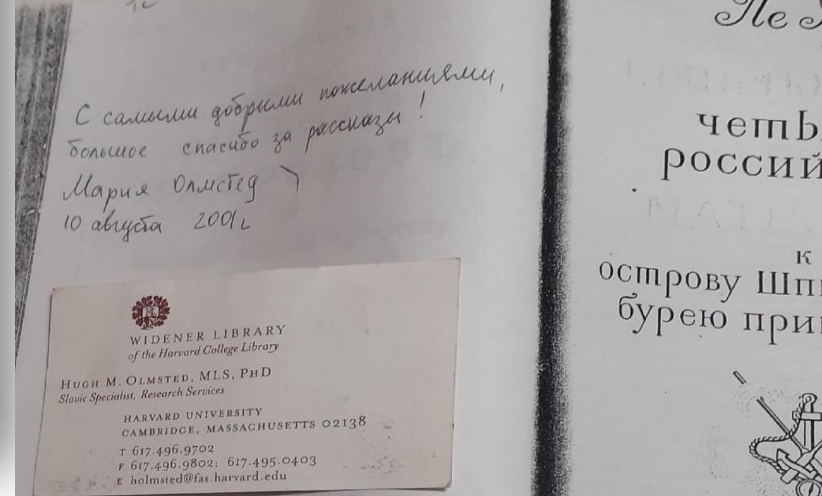 С самыми добрыми пожеланиями,
большое спасибо за рассказы!
Мария Олмстед
10 августа 2001г
WIDENER LIBRARY
of the Harvard College Library
HUGH M. OLMSTED, MLS, PHD
Slavic Specialist, Research Services
HARVARD UNIVERSITY
CAMBRIDGE, MASSACHUSETTS 02138
T 617.496.9702
F 617.496.9802; 617.495.0403
E holmsted@fas.harvard.edu
Ле
четы
россий
к
острову Шпи
бурею при